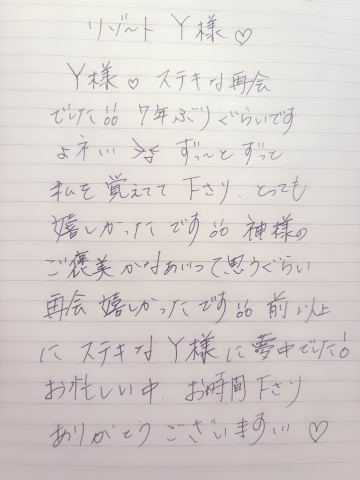 リゾート Y様♡
Y様♡ ステキな再会
でした!! 7年ぶりぐらいです
よネ… >< ずっ〜とずっと
私を覚えてて下さり、とっても
嬉しかったです!! 神様の
ご褒美かなぁ…って思うぐらい
再会嬉しかったです!! 前以上
に ステキな Y様に夢中でした!!
お忙しい中、お時間下さり
ありがとうございます… ♡